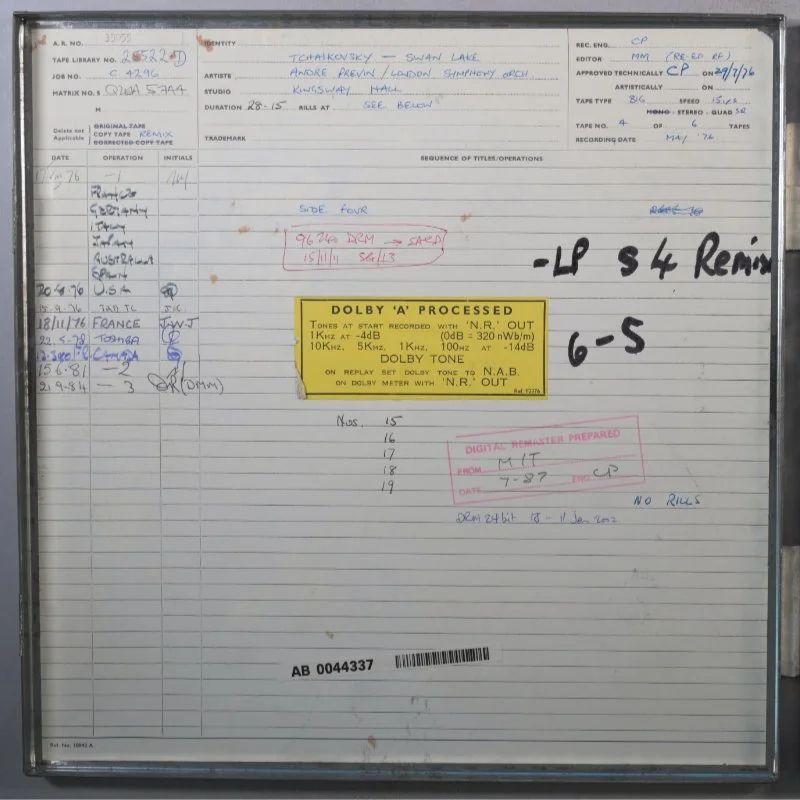 A.R. NO. 35055
TAPE LIBRARY NO.
JOB NO. C 4296
MATRIX NO.S
M
Delete not Applicable
ORIGINAL TAPE
COPY TAPE REMIX
CORRECTED COPY TAPE
IDENTITY
TCHAIKOVSKY — SWAN LAKE
ARTISTE ANDRE PREVIN / LONDON SYMPHONY ORCH.
STUDIO KINGSWAY HALL
DURATION 28-15 RILLS AT SEE BELOW
TRADEMARK
REC. ENG. CP
EDITOR MM
APPROVED TECHNICALLY CP ON 29/7/76
ARTISTICALLY ON
TAPE TYPE 816 SPEED 15 I.P.S
MONO - STEREO - QUAD
TAPE NO. 4 OF 6 TAPES
RECORDING DATE MAY '76
DATE OPERATION INITIALS
SEQUENCE OF TITLES/OPERATIONS
— 1
FRANCE
GERMANY
ITALY
JAPAN
AUSTRALIA
SPAIN
U.S.A
18/11/76 FRANCE J.W.J
TOSHIBA
CANADA
15 6.81 — 2
21.9.84 — 3 (DMM)
SIDE FOUR
96 24 DRM → SACD
15/11/11 SG/13
-LP S 4 Remix
6-5
DOLBY 'A' PROCESSED
TONES AT START RECORDED WITH 'N.R.' OUT
1KHZ AT -4dB (0dB = 320 nWb/m)
10KHZ, 5KHZ, 1KHZ, 100HZ AT -14dB
DOLBY TONE
ON REPLAY SET DOLBY TONE TO N.A.B.
ON DOLBY METER WITH 'N.R.' OUT
Nos. 15
16
17
18
19
DIGITAL REMASTER PREPARED
FROM M/T
DATE 7-87 ENG CP
NO RILLS
DRM 24 bit
AB 0044337